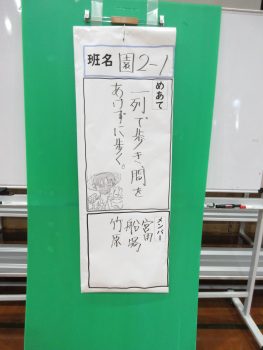 班名 園2-1
めあて
一列で歩き、間を
あけずに歩く。
メンバー
宮田
船路
竹原